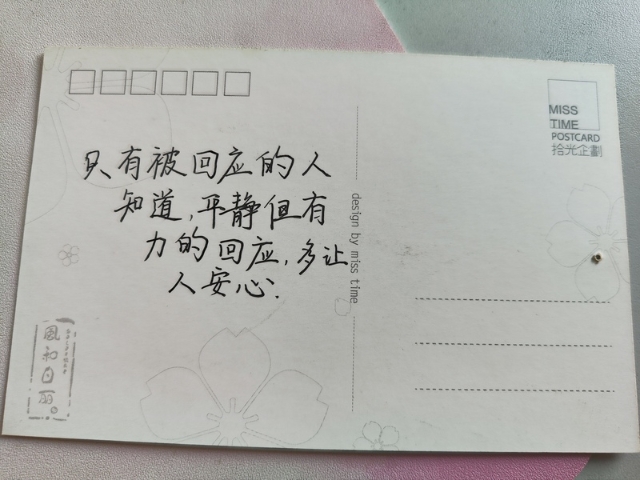 只有被回应的人
知道,平静但有
力的回应,多让
人安心.
design by miss time
MISS
TIME
POSTCARD
拾光企劃
風和日丽。